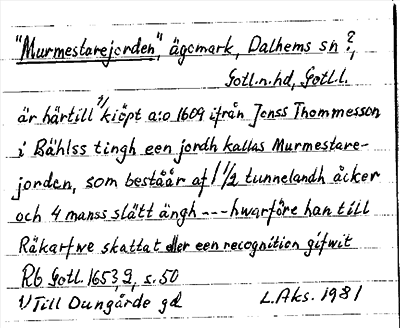 "Murmestarejorden", ägomark, Dalhems sn?,
Gotl.n.hd, Gotl.l.
är härtill 1/ kiöpt a:o 1609 ifrån Jenss Thommesson
i Bählss tingh een jordh kallas Murmestare-
jorden, som beståår af 1 1/2 tunnelandh åcker
och 4 manss slätt ängh --- hwarföre han till
Räkarfwe skattat eller een recognition gifwit
Rb Gotl. 1653, 2, s. 50
1/ Till Dungårde gd L.Aks. 1981